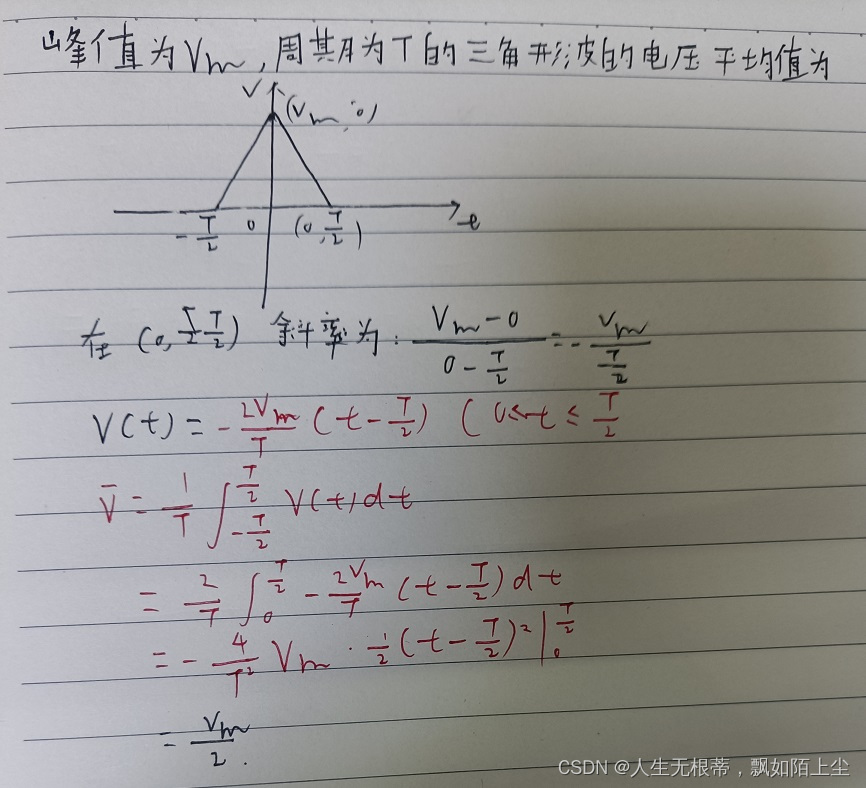 峰值为Vm,周期为T的三角形波的电压平均值为
V
(Vm,0)
-T/2 0 (0,T/2) t
在 (0, T/2) 斜率为: (Vm-0)/(0-T/2) = -Vm/(T/2)
V(t) = -2Vm/T (t-T/2) ( 0≤t≤T/2
V̄ = 1/T ∫_{-T/2}^{T/2} V(t)dt
= 2/T ∫_0^{T/2} -2Vm/T (t-T/2)dt
= -4/T² Vm · 1/2 (t-T/2)² |_0^{T/2}
= Vm/2.
CSDN @人生无根蒂,飘如陌上尘